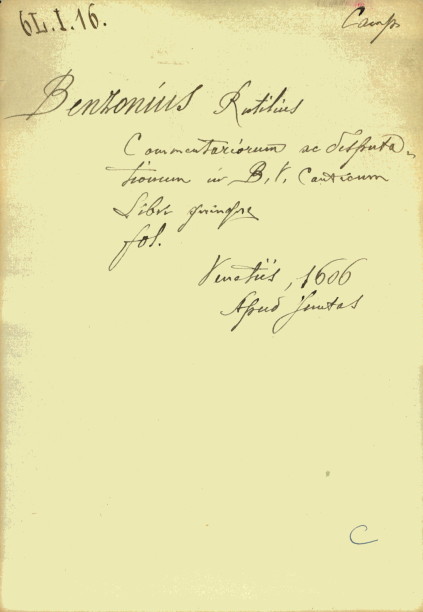 6L.I.16.
Camp
Benzonius Rutilius
Commentariorum ac disputa-
tionum in B. V. Canticum
Libri quinque
fol.
Venetiis, 1606
Apud Juntas
C